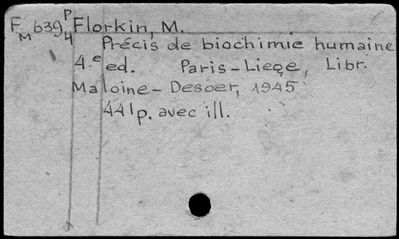 F M 639 P 4 Florkin, M.
Précis de biochimie humaine
4.e ed. Paris-Liege, Libr.
Maloine-Desoer, 1945
441p. avec ill.